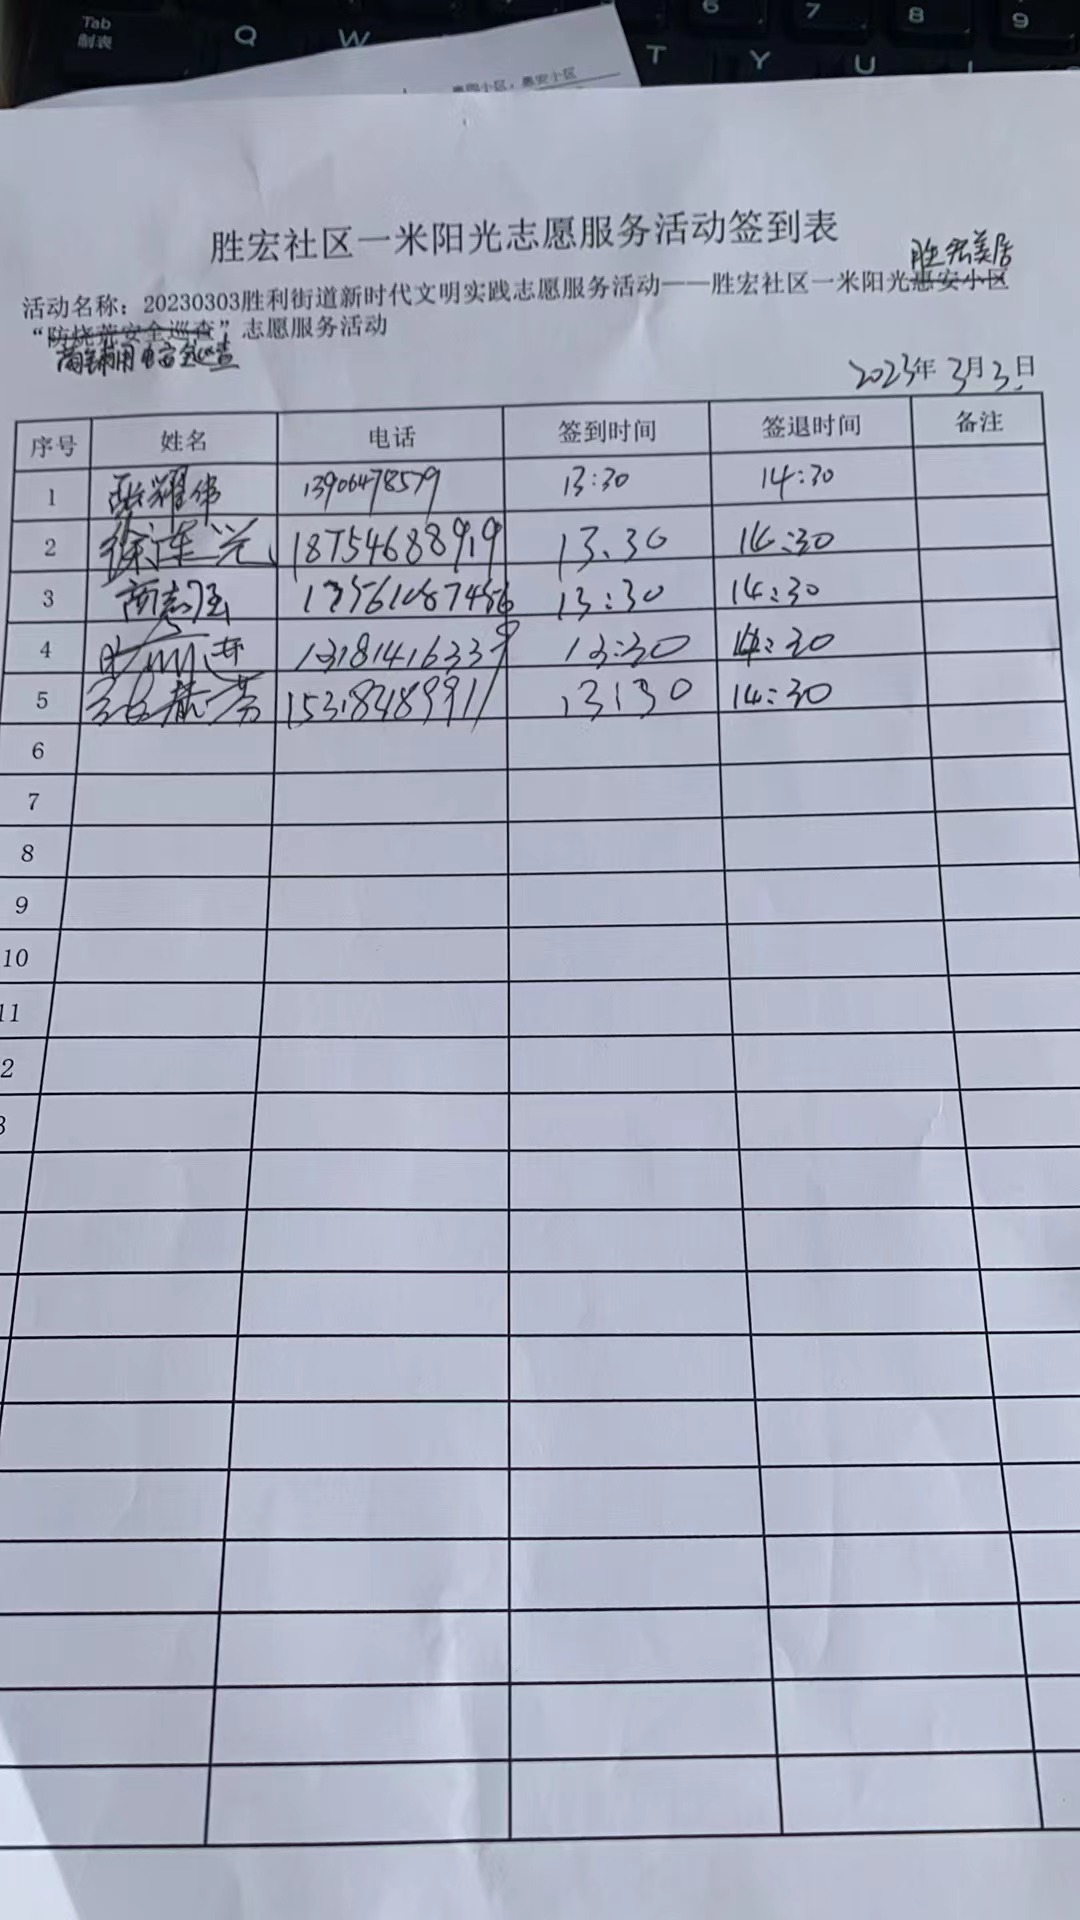 Tab
制表
Q W T Y U
6 7 8 9
惠安小区
胜宏社区一米阳光志愿服务活动签到表
胜宏美居
活动名称：20230303胜利街道新时代文明实践志愿服务活动——胜宏社区一米阳光惠安小区
“防烧荒安全巡查”志愿服务活动
商铺用电安全巡查
2023年 3月3日
序号 姓名 电话 签到时间 签退时间 备注
1 耀伟 13906478579 13:30 14:30
2 徐连兴 18754688919 13.30 14:30
3 商志 13:30 14:30
4 13181416339 13:30 14:30
5 15318489911 13:30 14:30
6
7
8
9
10
11
2
3